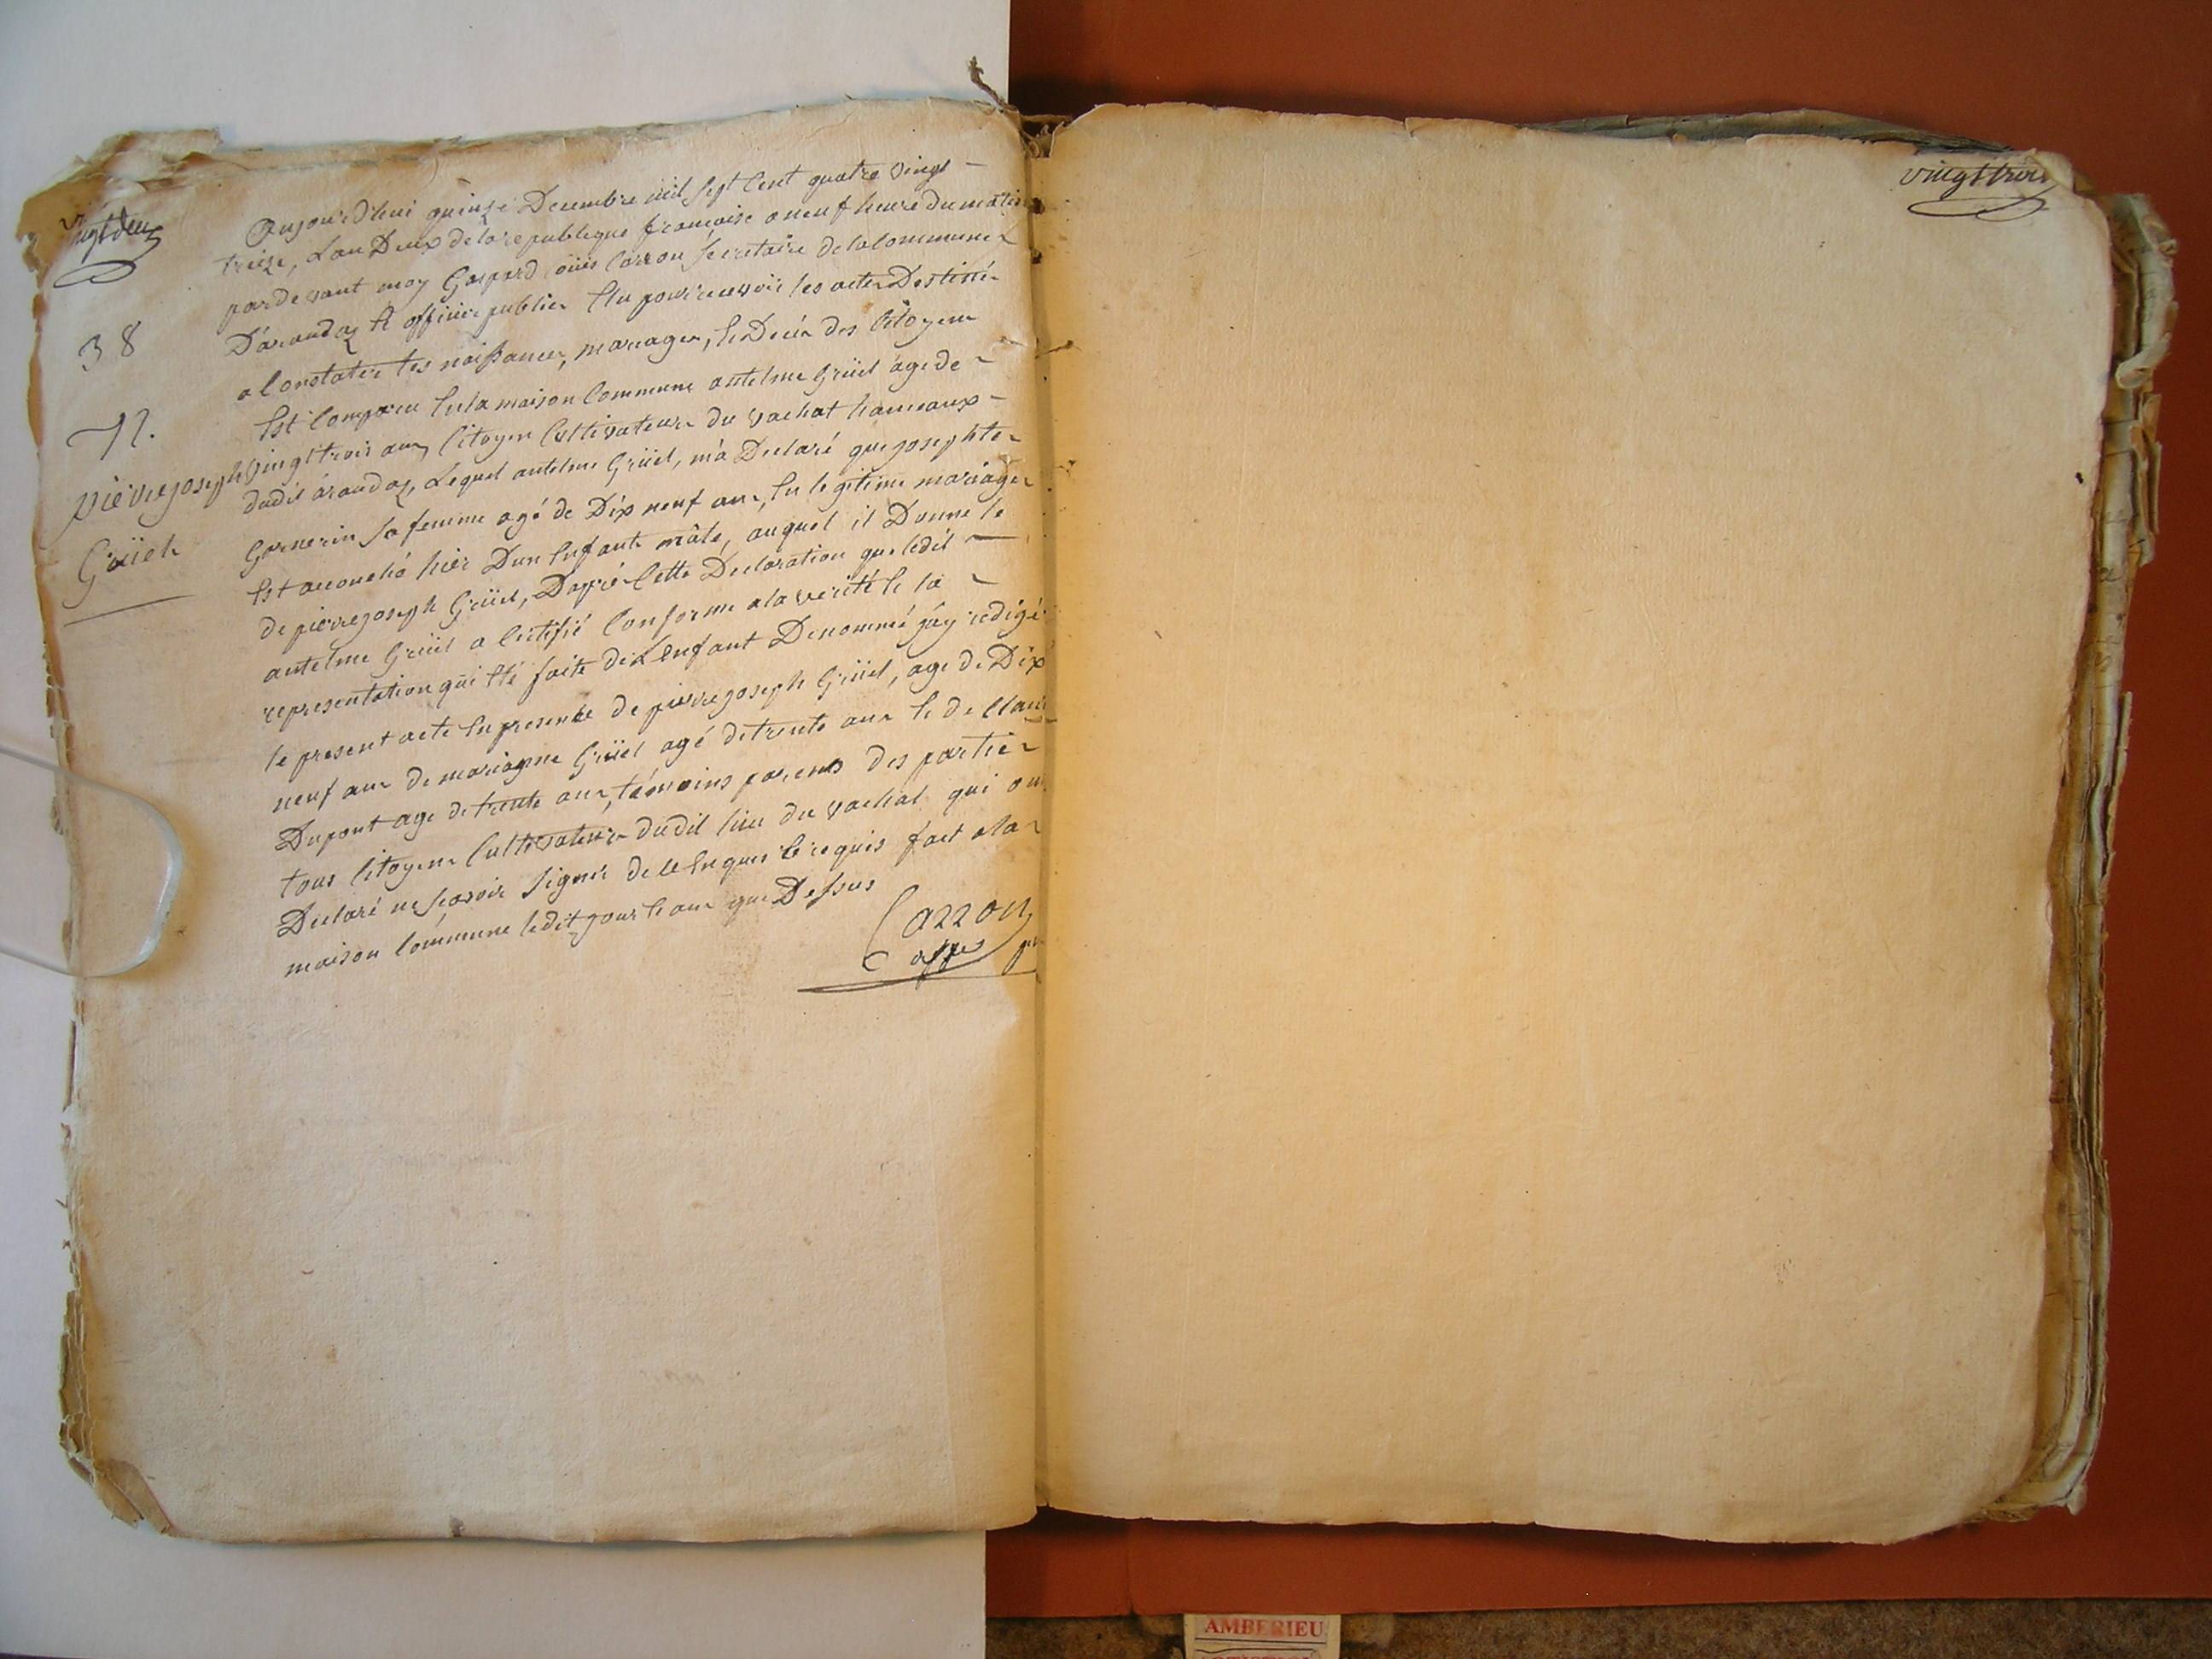 vingt deux
38
N.
pierre joseph
Grüel
Aujourd'hui quinze Decembre mil sept Cent quatre vingt
treize, L'an Deux de la republique francaise a neuf heure du matin
par devant moy Gaspard Loüis Carron secretaire de la Commune
D'arandaz et officier publier Elu pour recevoir les actes Destiné
a Constater les naissances, mariages, et Decès des Citoyens
Est Comparu En la maison Commune antelme Grüel age de
vingt trois ans Citoyen Cultivateur du vachat hameaux
dudit arandaz, Lequel antelme Grüel, m'a Declaré que josephte
Garnerin sa femme agé de Dix neuf ans, En legitime mariage
Est accouché hier D'un Enfant mâle, auquel il Donne le
de pierre joseph Grüel, D'après Cette Declaration que ledit
antelme Grüel a Certifié Conforme a la verité et la
representation qui Eté faite de L'enfant Denommé j'ay redigé
le present acte En presence de pierre joseph Grüel, age de Dix
neuf ans de marianne Grüel agé de trente ans et de Claude
Dupont age de trente ans, témoins parents des parties
tous Citoyens Cultivateurs dudit lieu du vachat qui on
Declaré ne scavoir signer de ce Enquis et requis fait a la
maison Commune ledit jour et an que Dessus
Carron
offier pu
vingt trois
AMBERIEU